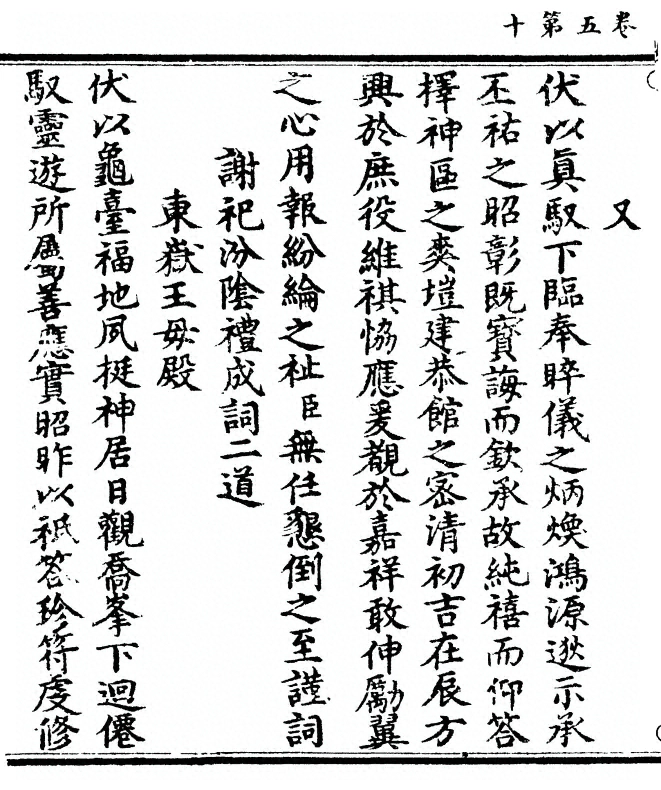 卷五第十
又
伏以真馭下臨奉睟儀之炳煥鴻源逖示承
丕祐之昭彰既寳誨而欽承故純禧而仰答
擇神區之爽塏建恭館之宻清初吉在辰方
興於庶役維祺恊應爰覩於嘉祥敢伸勵翼
之心用報紛綸之祉臣無任懇倒之至謹詞
謝祀汾隂禮成詞二道
東嶽王母殿
伏以龜臺福地夙挺神居日觀喬峯下迴僊
馭靈遊所屬善應實昭昨以祗荅珍符虔修